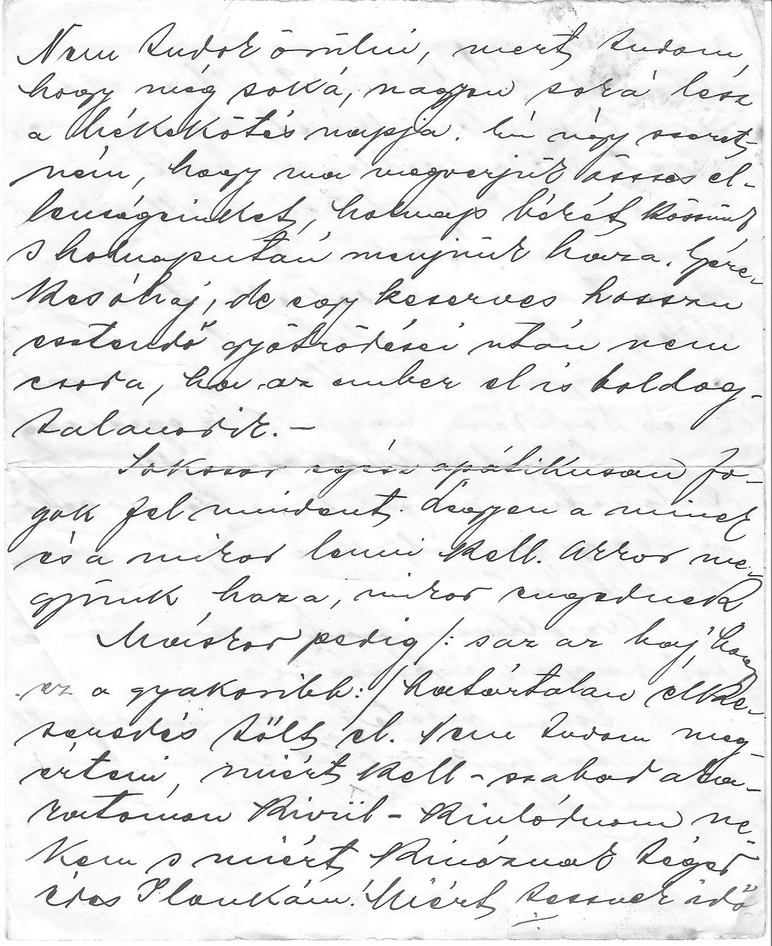 Nem tudok örülni, mert tudom,
hogy még soká, nagyon soká lesz
a békekötés napja. Én úgy szeret-
ném, hogy ma megverjük összes el-
lenségeinket, holnap békét kössünk
s holnapután menjünk haza. Gyere-
kes óhaj, de egy keserves hosszu
esztendő gyötrődései után nem
csoda, ha az ember el is boldog-
talanodik. –
Sokszor egész apátikusan fo-
gok fel mindent. Legyen a minek
és a mikor lenni kell. Akkor me-
gyünk haza, mikor engednek
Máskor pedig /: s az az baj, hogy
ez a gyakoribb :/ határtalan elke-
seredés tölt el. Nem tudom meg-
érteni, miért kell – szabad aka-
ratomon kivül – kinlódnom ne-
kem s miért kinóznak téged
édes Ilonkám! Miért tesznek idő-